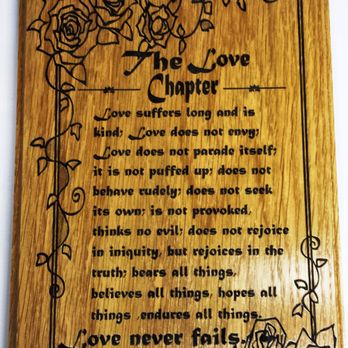 The Love
Chapter
Love suffers long and is
kind; Love does not envy;
Love does not parade itself;
it is not puffed up; does not
behave rudely; does not seek
its own; is not provoked,
thinks no evil; does not rejoice
in iniquity, but rejoices in the
truth; bears all things,
believes all things, hopes all
things ,endures all things.
Love never fails.